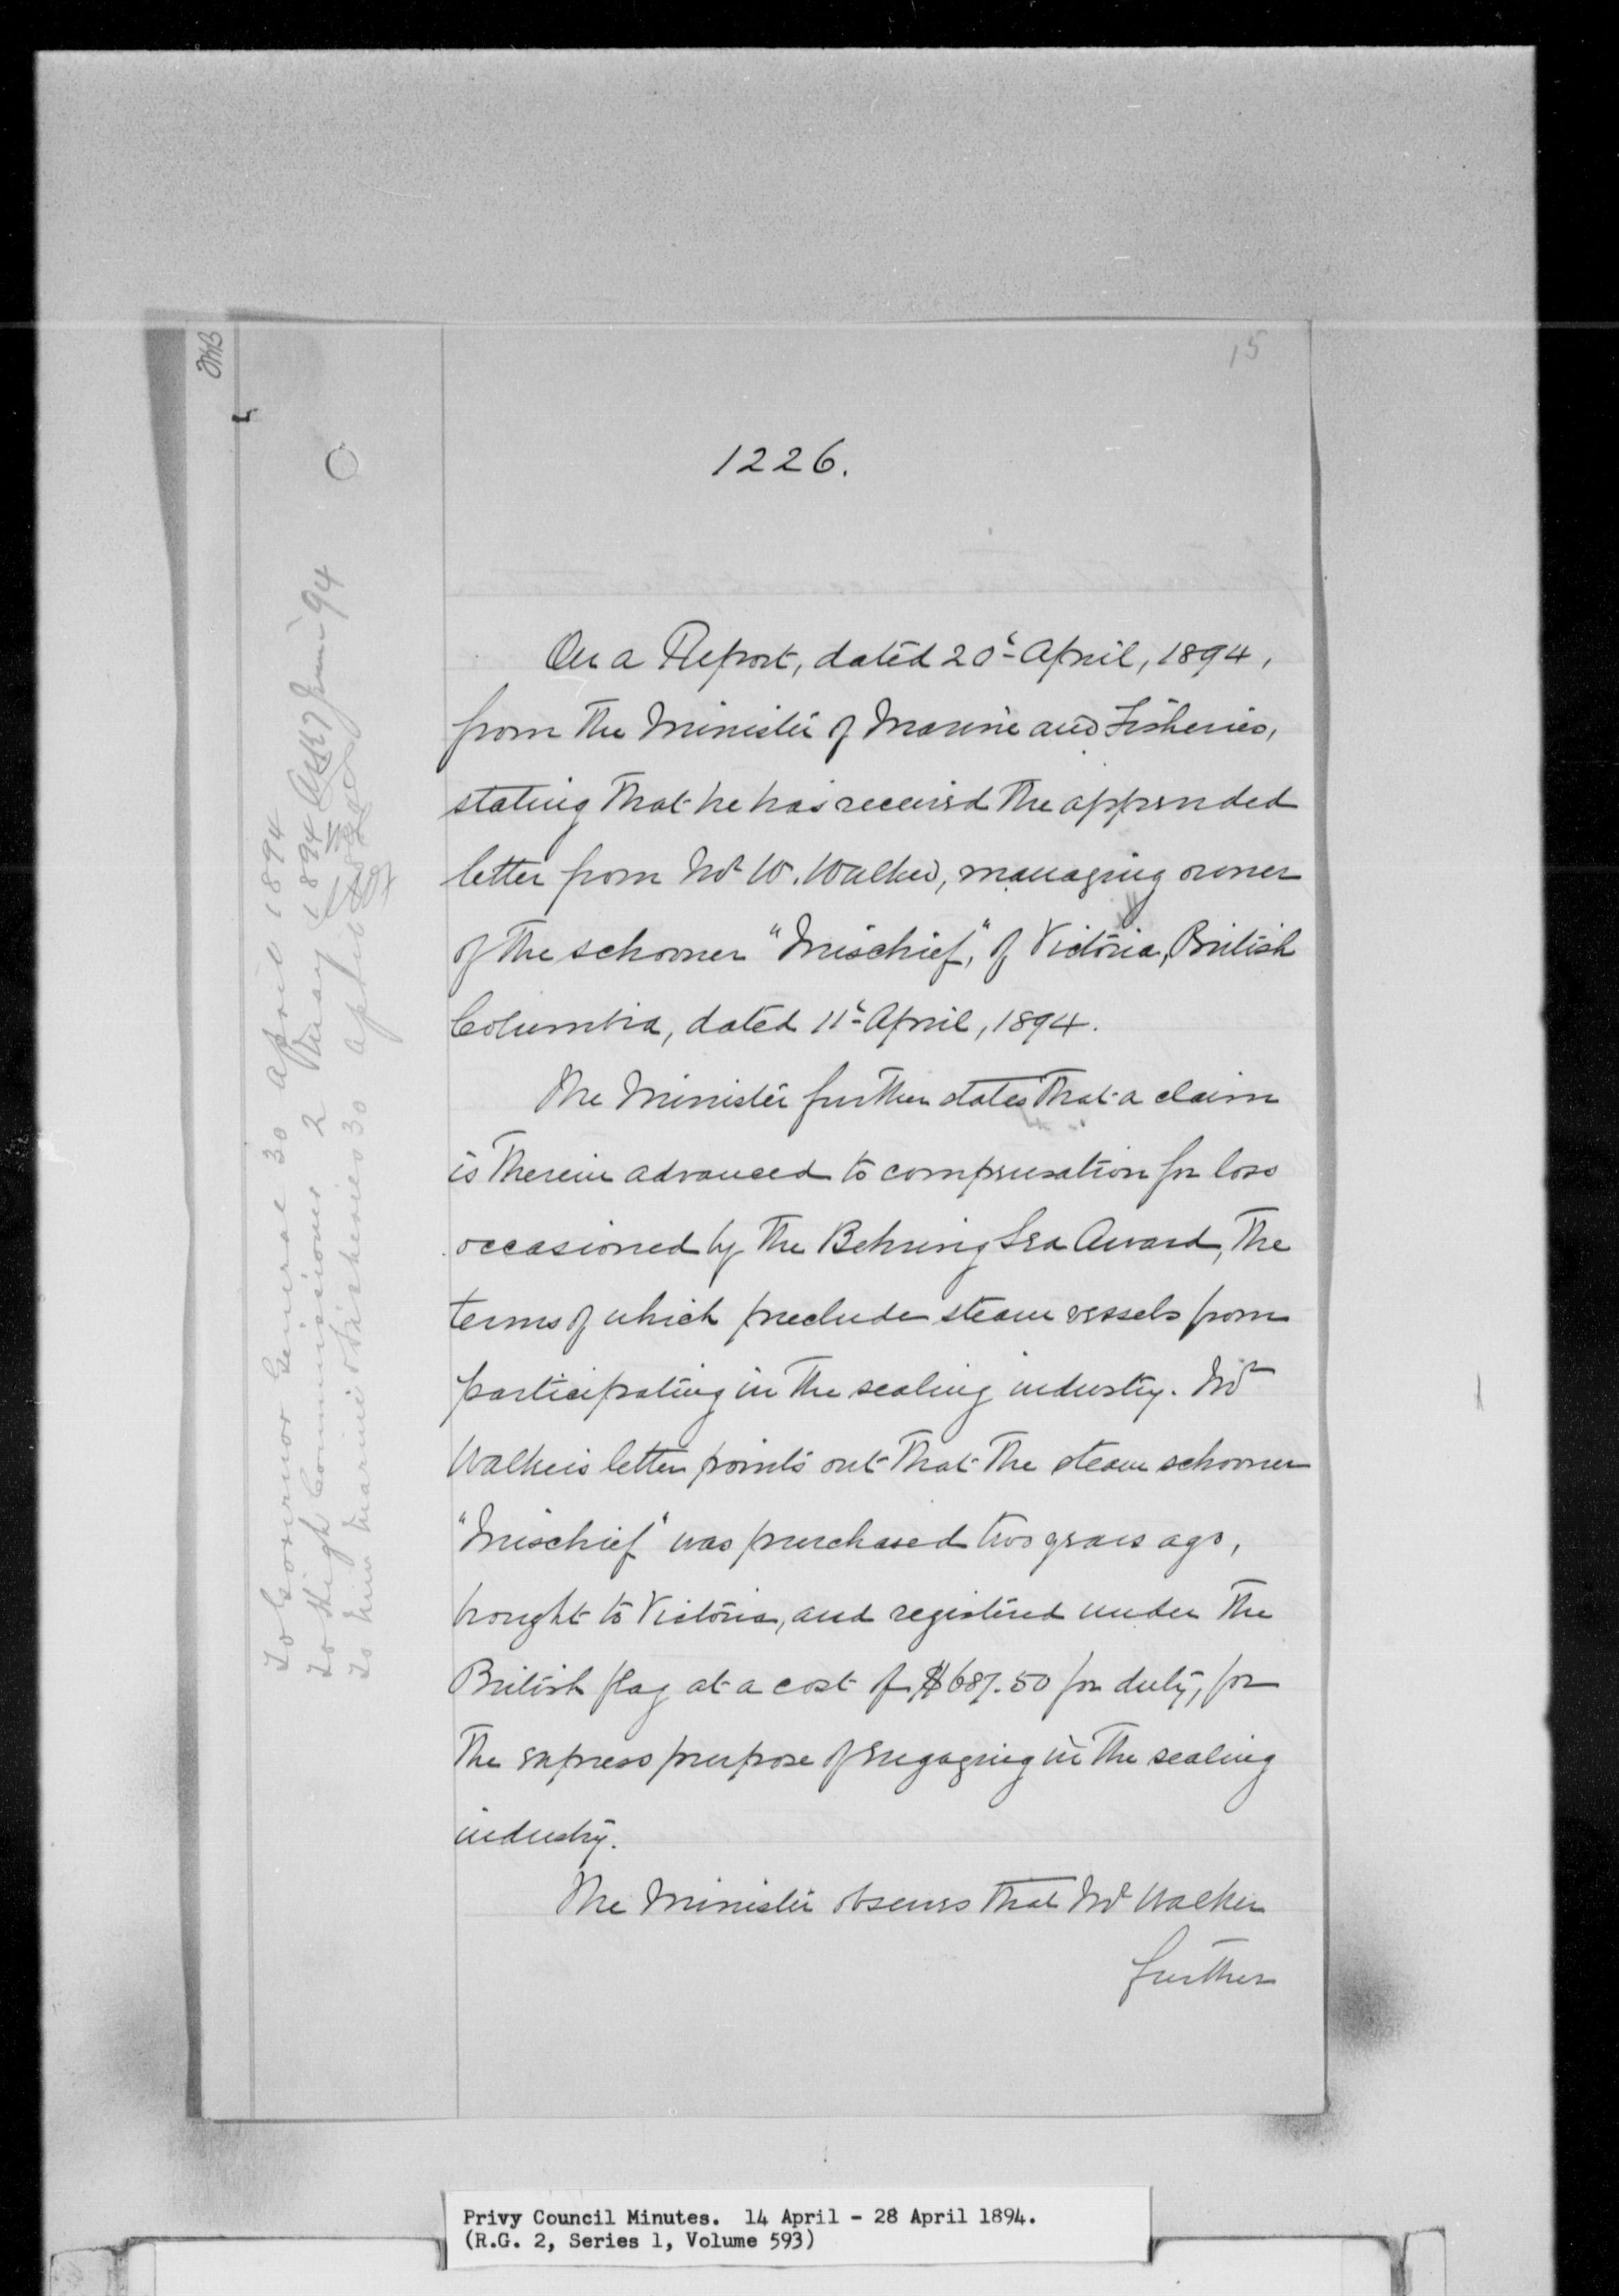 15
1226.
On a Report, dated 20th April, 1894,
from the Minister of Marine and Fisheries,
stating that he has received the appended
letter from Mr W. Walker, managing owner
of the schooner "Mischief," of Victoria, British
Columbia, dated 11th April, 1894.
The Minister further states that a claim
is therein advanced to compensation for loss
occasioned by the Behring Sea Award, the
terms of which preclude steam vessels from
participating in the sealing industry. Mr
Walker's letter points out that the steam schooner
"Mischief" was purchased two years ago,
brought to Victoria, and registered under the
British flag at a cost of $687.50 for duty, for
the express purpose of engaging in the sealing
industry.
The Minister observes that Mr Walker
further
To Governor General 30 April 1894
To High Commissioner 2 May 1894 June 94
To Min Marine & Fisheries 30 April
Privy Council Minutes. 14 April - 28 April 1894.
(R.G. 2, Series 1, Volume 593)